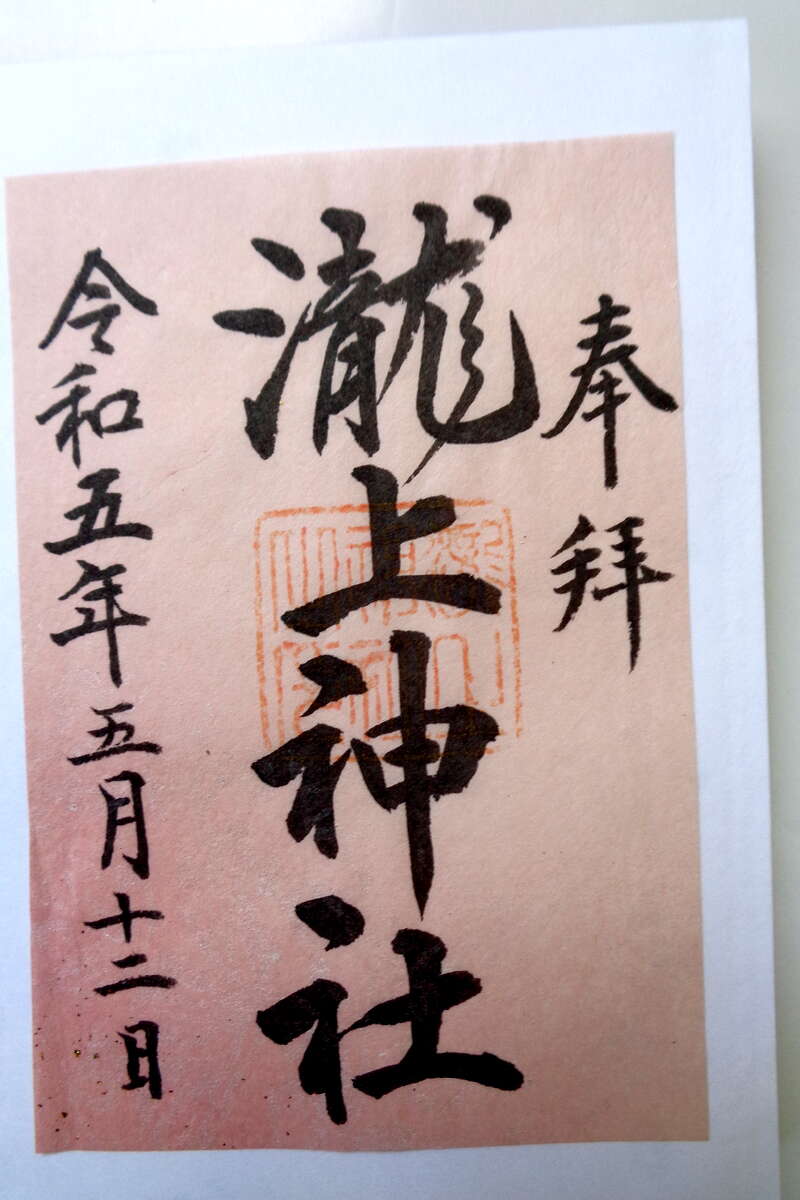 奉拝
瀧上神社
令和五年五月十二日